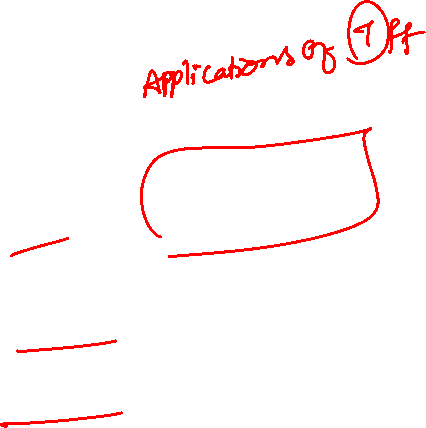 Applications of T ff